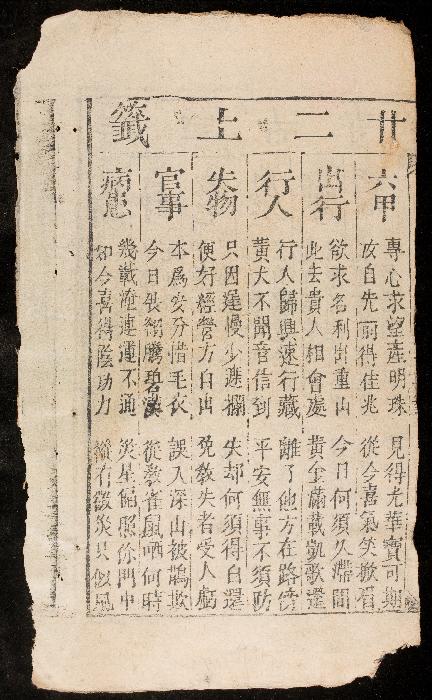 廿二上籤
六甲
專心求望產明珠 見得光華寶可期
汝自先前得佳兆 從今喜氣笑掀眉
出行
欲求名利出重山 今日何須久滯間
此去貴人相會處 黃金滿載凱歌還
行人
行人歸興速行藏 離了他方在路傍
黃犬不聞音信到 平安無事不須防
失物
只因遲慢少遮攔 失却何須得自還
便好經營方白出 免教失者受人
官事
本為安分惜毛衣 誤入深山被鵲欺
今日張翎騰碧漢 從教雀鼠哂何時
病患
幾載迍邅運不通 災星偏照你門中
如今喜得陰功力 災只似風